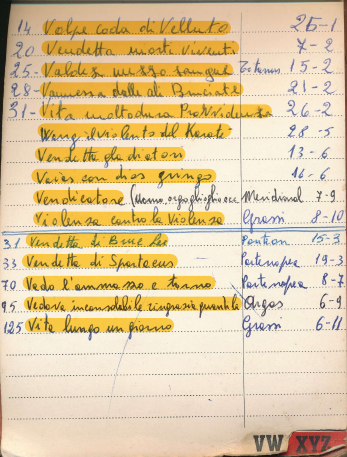 14 Volpe coda di Velluto 25-1
20 Vendetta morti viventi 7-2
25- Valdez mezzo sangue 15-2
28- Vanessa dalle ali Bruciate 21-2
31- Vita molto dura Provvidenza 26-2
Wang il violento del Karate 28-5
Vendetta gladiatori 13-6
Vaias con dios gringo 14-6
Vendicatore (Uomo, orgoglio ecc Meridional 7-9
Violenza contro la violenza Grassi 8-10
31 Vendetta di Bruce Lee 15-3
33 Vendetta di Spartacus Partenopea 19-3
70 Vado l'ammazzo e torno Partenopea 8-7
95 Vedova inconsolabile ringrazia quanti la Orgas 6-9
125 Vita lunga un giorno Grassi 6-11
VW XYZ